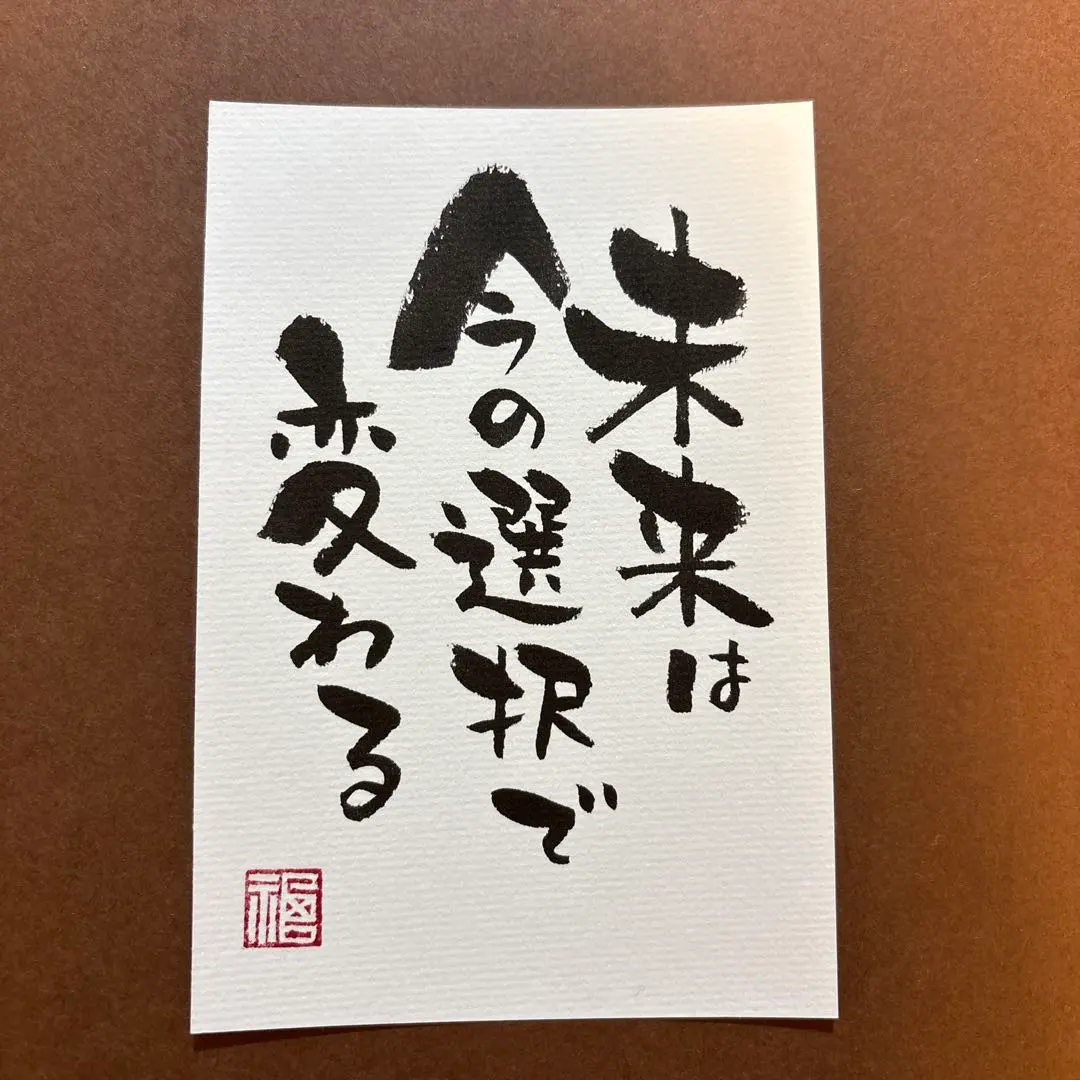 未来は
今の選択で
変わる